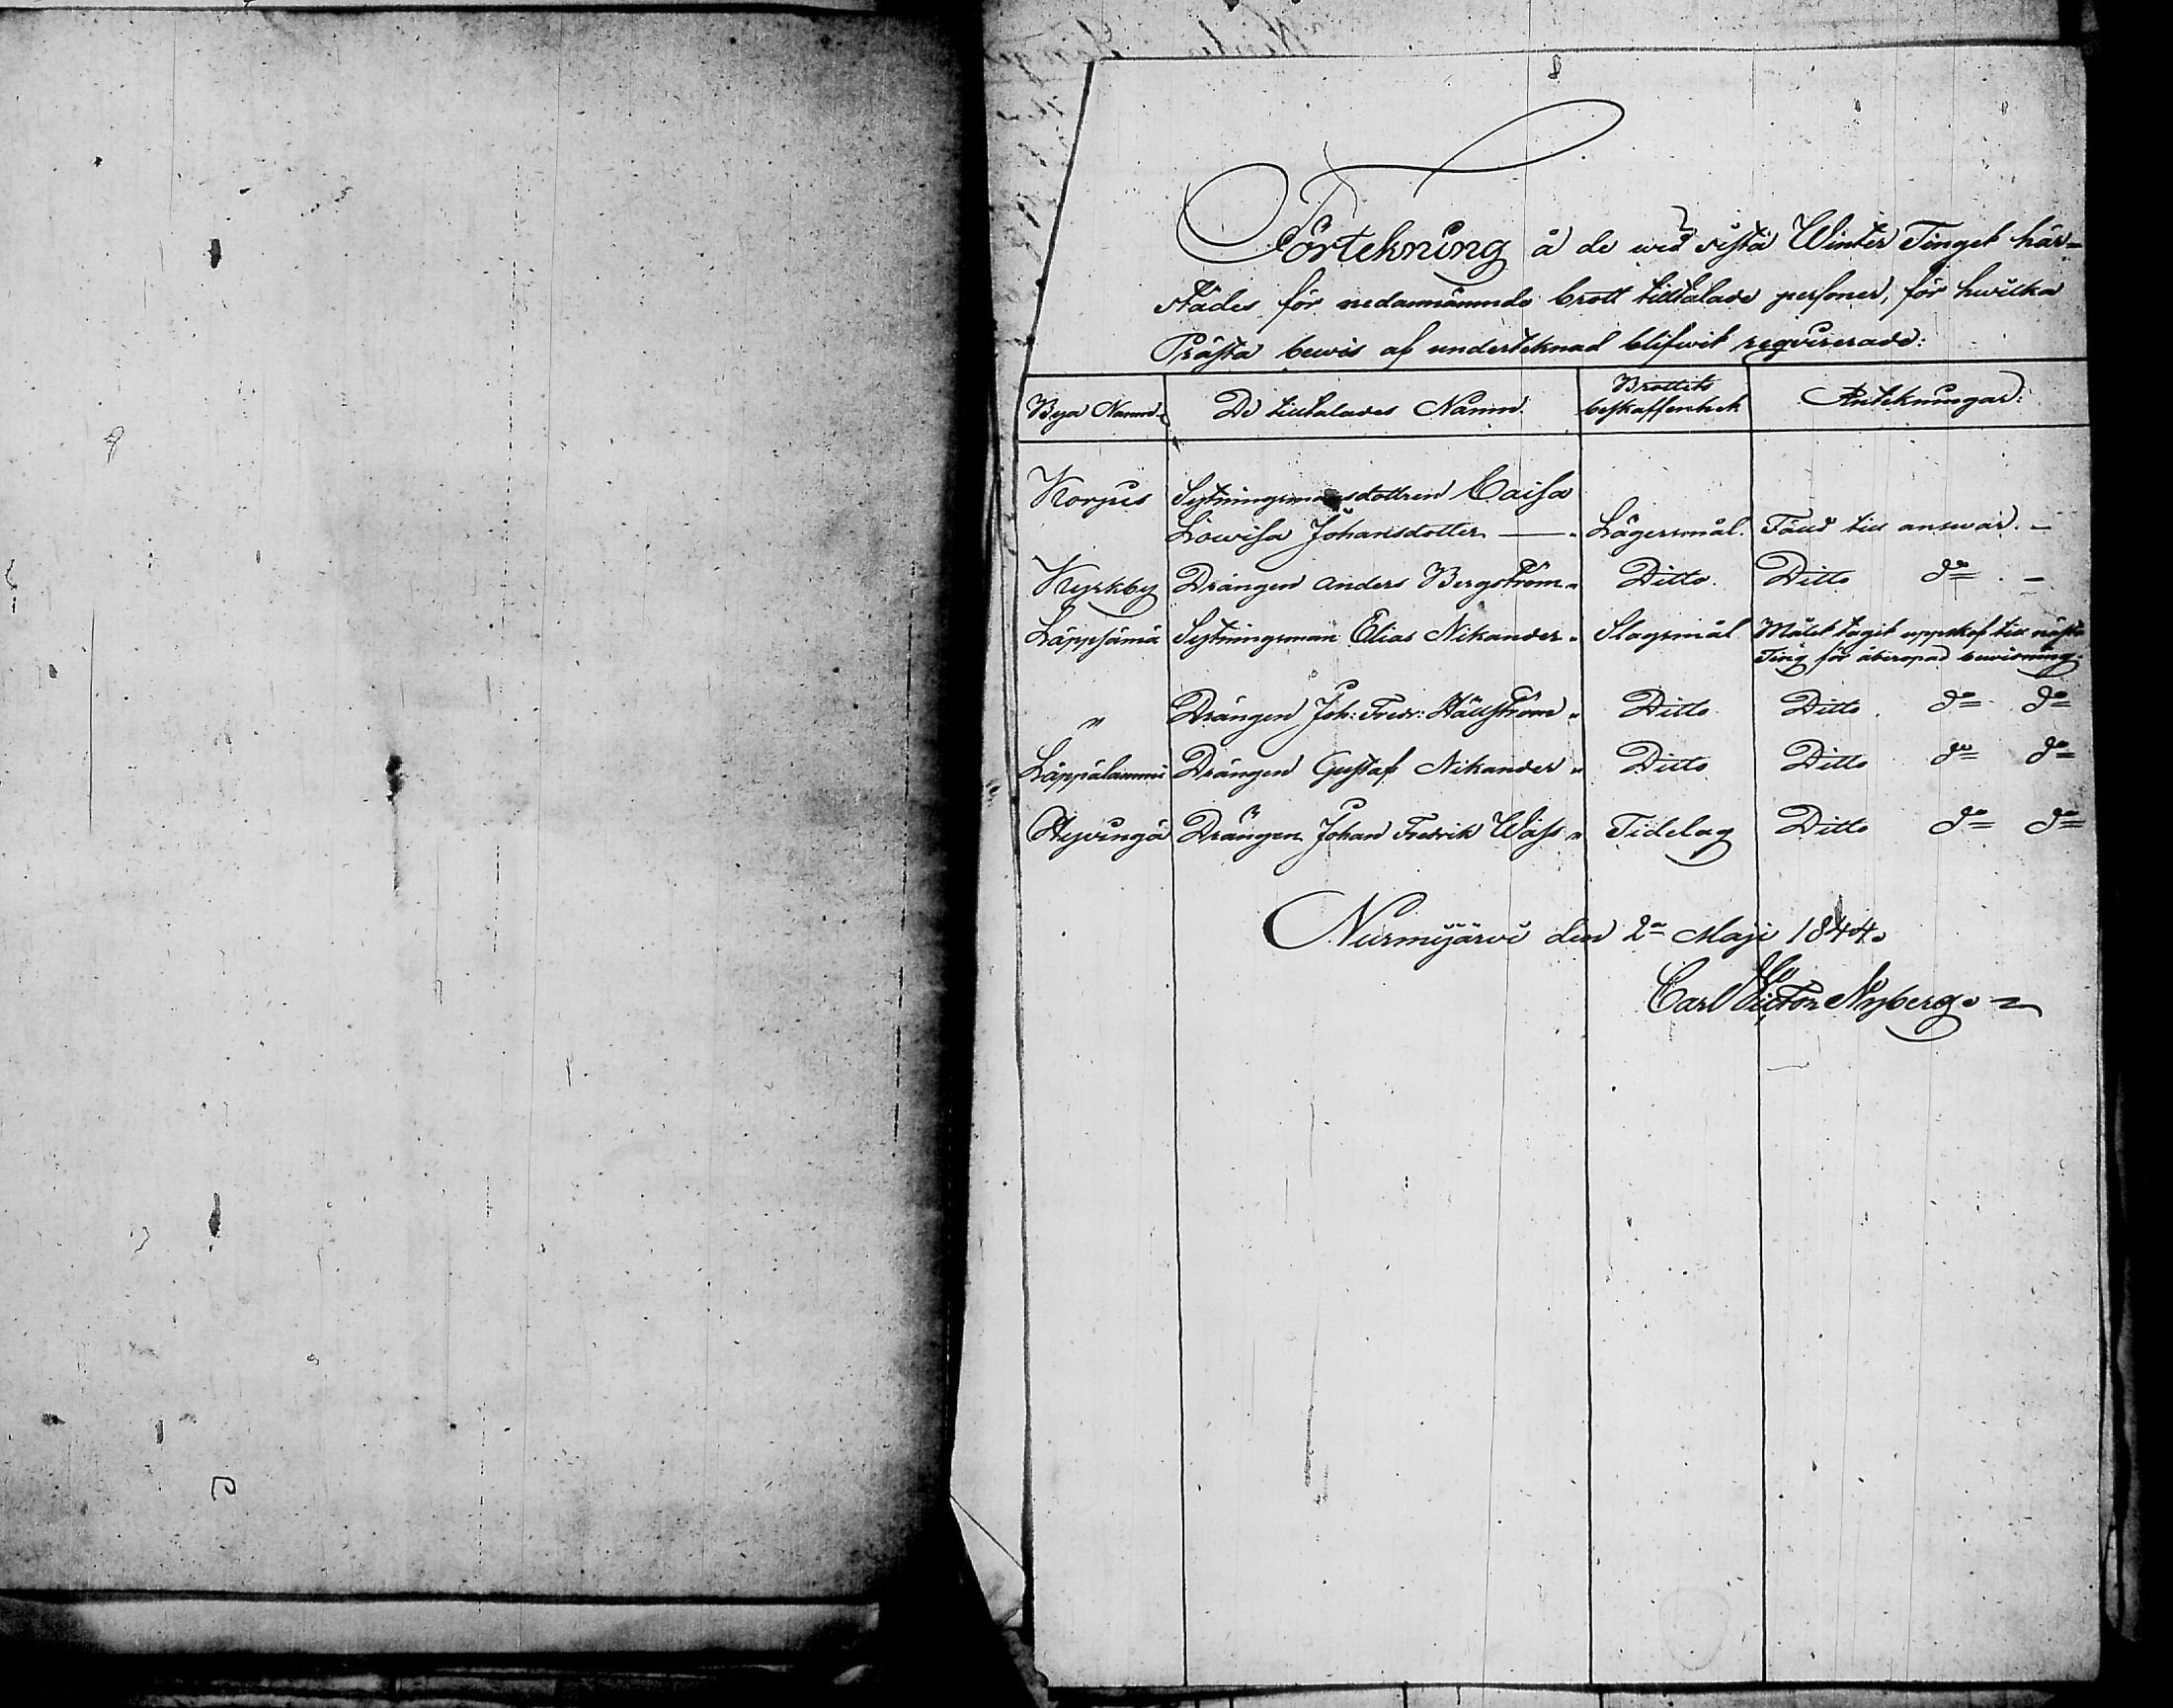 Förtekning å de wid sista Winter Tinget här-
städes för nedannämnde brott tilltalade personer, för hwilka
Prästa bewis af underteknad blifwit requirerade:
Bya Namn. De tilltalades Namn. Brottets beskaffenhet Antekningar:
Korpus Sytningsmansdottren Caisa
Lowisa Johansdotter — Lägersmål. Fälld till answar. —
Kyrkby Drängen Anders Bergström Ditto. Ditto do. —
Läppjämä Sytningsman Elias Nikander Slagsmål Målet tagit uppskof till nästa
Ting för åberopad bewisning.
" Drängen Joh: Fredr: Hällström Ditto Ditto do do
Läppälammi Drängen Gustaf Nikander Ditto Ditto do do
Hyvingä Drängen Johan Fredrik Wass Tidelag Ditto do do
Nurmijärvi den 2a Maji 1844.
Carl Victor Nyberg.